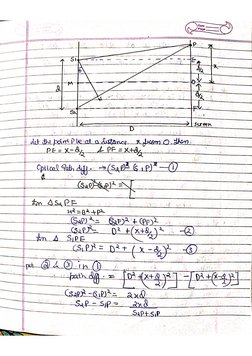 P
S₁
E
x
d
M
O
d/2
S₂
F
D
Screen
Let the point P be at a distance x from O then
PE = x - d/2 & PF = x + d/2
Optical Path diff. → (S₂P)² - (S₁P)² — ①
(S₂P)² - (S₁P)² =
In Δ S₂PF
H² = B² + P²
(S₂P)² = (S₂F)² + (PF)²
(S₂P)² = D² + (x + d/2)² — ②
In Δ S₁PE
(S₁P)² = D² + (x - d/2)² — ③
put ② & ③ in ①
path diff. = [D² + (x + d/2)²] - [D² + (x - d/2)²]
(S₂P)² - (S₁P)² = 2xd
S₂P - S₁P = 2xd
S₂P + S₁P